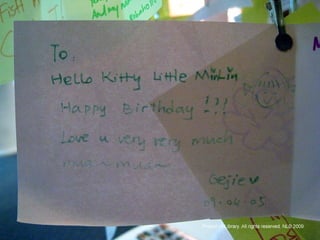 To:
Hello Kitty Little MinLin
Happy Birthday !?!
Love u very very much
mua~mua~
Gejie
09.04.05
Library. All rights reserved. NLB 2009